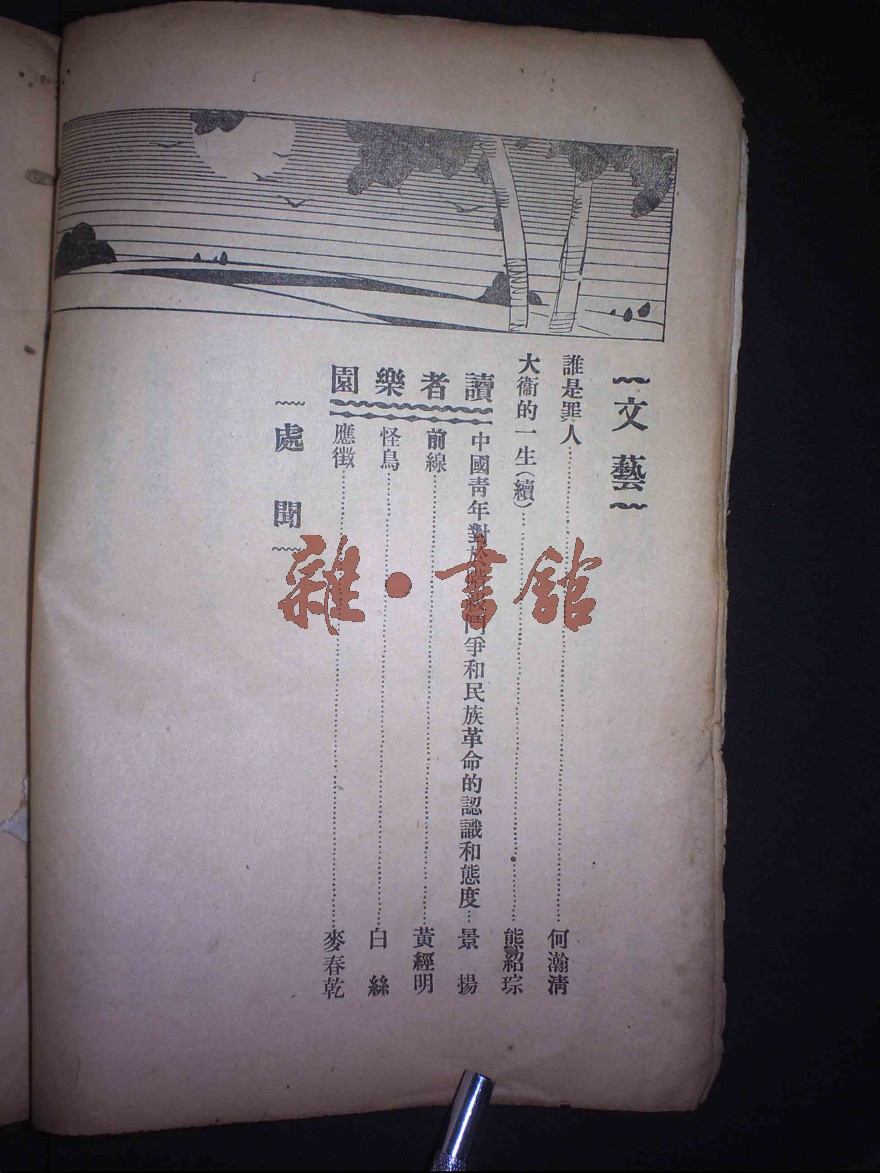 文藝
誰是罪人……何瀚清
大衞的一生(續)……熊紹琮
讀者樂園
中國青年對於階級鬥爭和民族革命的認識和態度…景揚
前線……黃經明
怪鳥……白絲
應徵……麥春乾
處聞
雜·書館